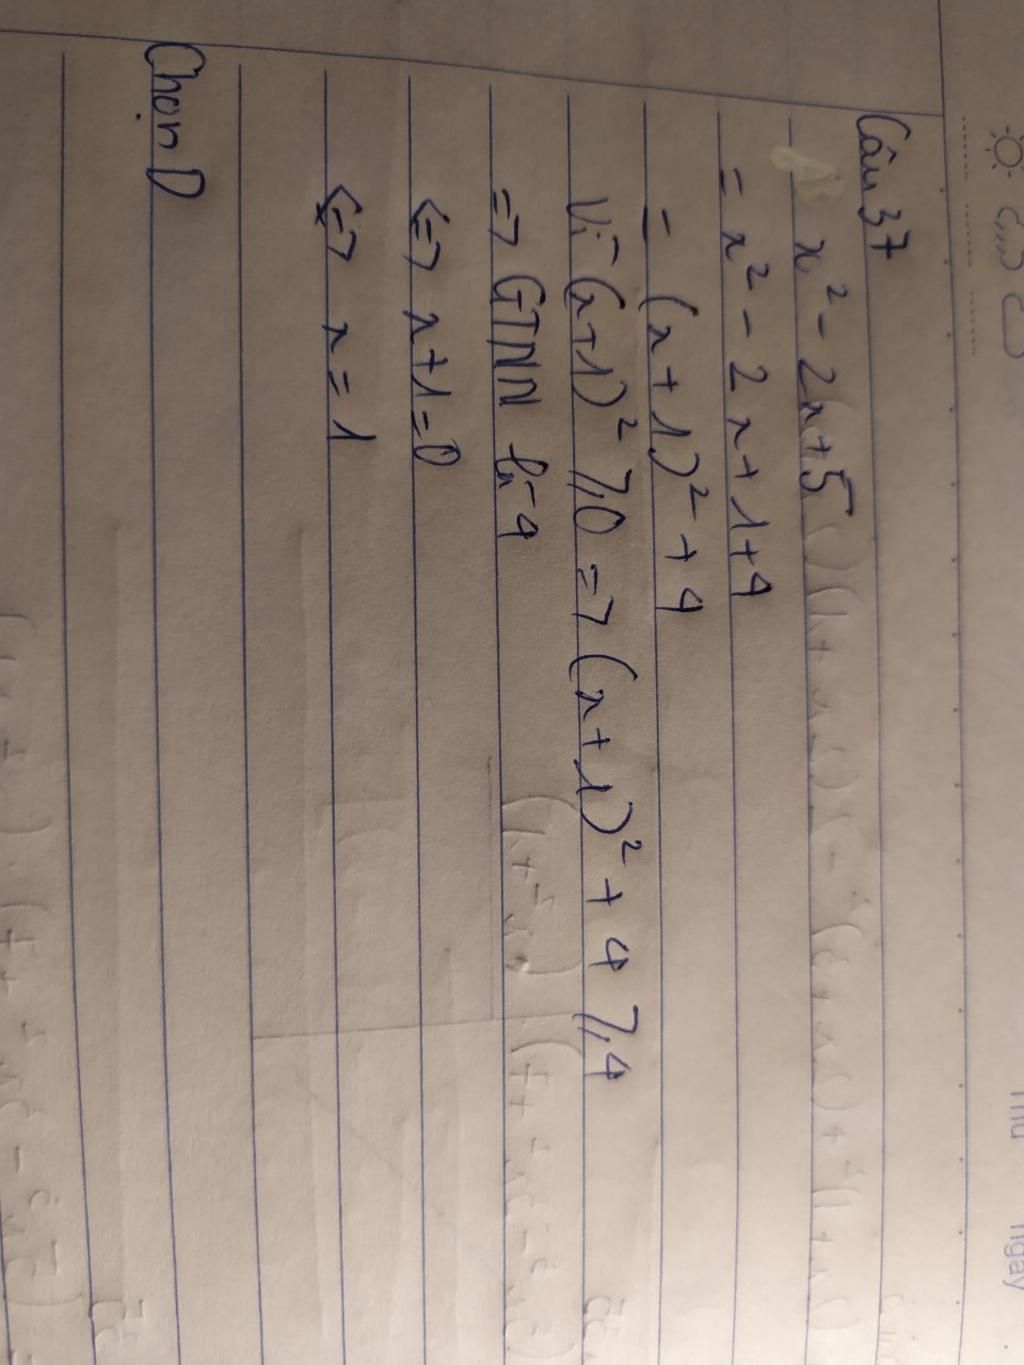 Thứ ngày
Câu 37
x² - 2x + 5
= x² - 2x + 1 + 4
= (x + 1)² + 4
Vì (x+1)² ⩾ 0 => (x+1)² + 4 ⩾ 4
=> GTNN là 4
<=> x+1=0
<=> x = 1
Chọn D